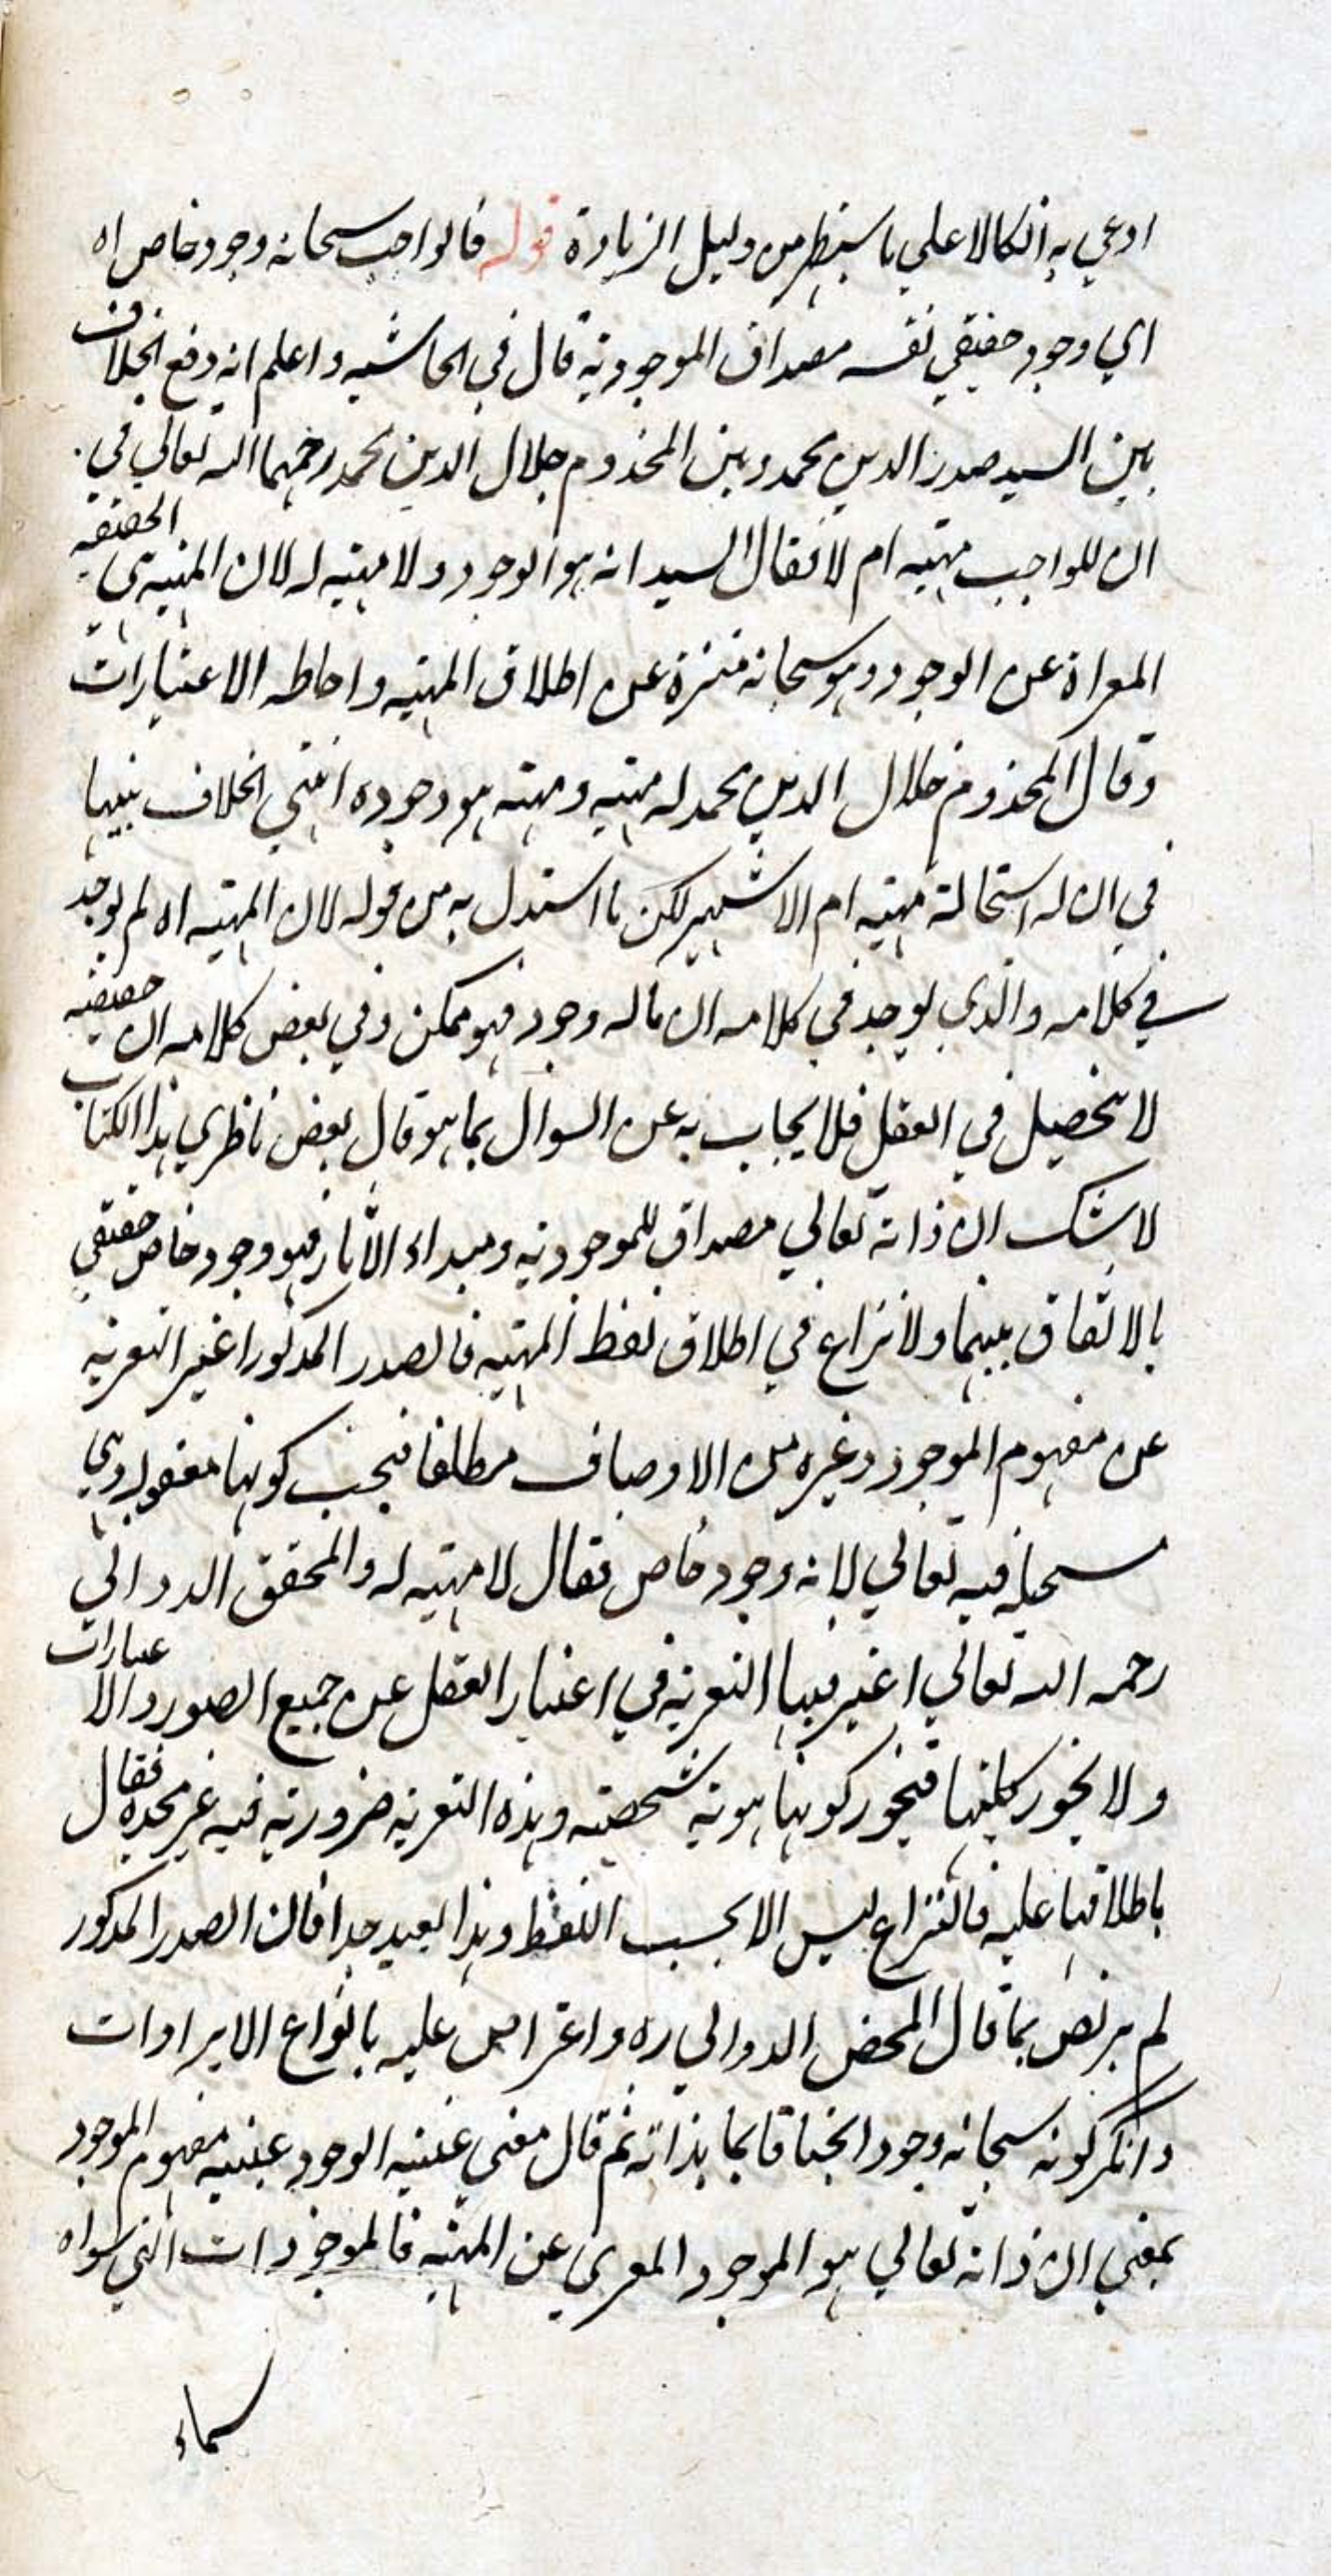 ادعي به اتكالا علي ما سيظهر من دليل الزيادة قوله فالواجب سبحانه وجود خاص اه
اي وجود حقيقي نفسه مصداق الموجودية قال في الحاشيه واعلم انه وقع الخلاف
بين السيد صدر الدين محمد وبين المخدوم جلال الدين محمد رحمهما الله تعالي في
ان للواجب مهيه ام لا فقال السيد انه هو الوجود ولا مهيه له لان المهيه هي الحقيقه
المعراة عن الوجود وهو سبحانه منزه عن اطلاق المهيه واحاطه الاعتبارات
وقال المخدوم جلال الدين محمد له مهيه ومهيته هو وجوده انتهي الخلاف بينهما
في ان له استحالة مهيه ام لا شهير لكن ما استدل به من قوله لان المهيه اه لم يوجد
في كلامه والذي يوجد في كلامه ان ما له وجود فهو ممكن وفي بعض كلامه ان حقيقته
لا تحصيل في العقل فلا يجاب به عن السوال بما هو قال بعض ناظري هذا الكتاب
لا شك ان ذاته تعالي مصداق للموجودية ومبداء الآثار فهو وجود خاص حقيقي
بالاتفاق بينهما ولا نزاع في اطلاق لفظ المهيه فالصدر المذكور اعتبر التعريه
عن مفهوم الموجود وغيره من الاوصاف مطلقا فيجب كونها معقوله وهي
مستحيلة فيه تعالي لانه وجود خاص فقال لا مهيه له والمحقق الدواني
رحمه الله تعالي اعتبر فيها التعريه في اعتبار العقل عن جميع الصور والاعتبارات
ولا يجوز كليتها فيجوز كونها هوية شخصيه وهذه التعريه ضرورية فيه غير محده فقال
باطلاقها عليه فالنزاع ليس الا بحسب اللفظ وهذا بعيد جدا فان الصدر المذكور
لم يرتض بما قال المحقق الدواني ره واعترض عليه بانواع الايرادات
وانكر كونه سبحانه وجودا بحتا قائما بذاته ثم قال معني عينيه الوجود عينيه مفهوم الموجود
بمعني ان ذاته تعالي هو الموجود المعري عن المهيه فالموجودات التي سواه